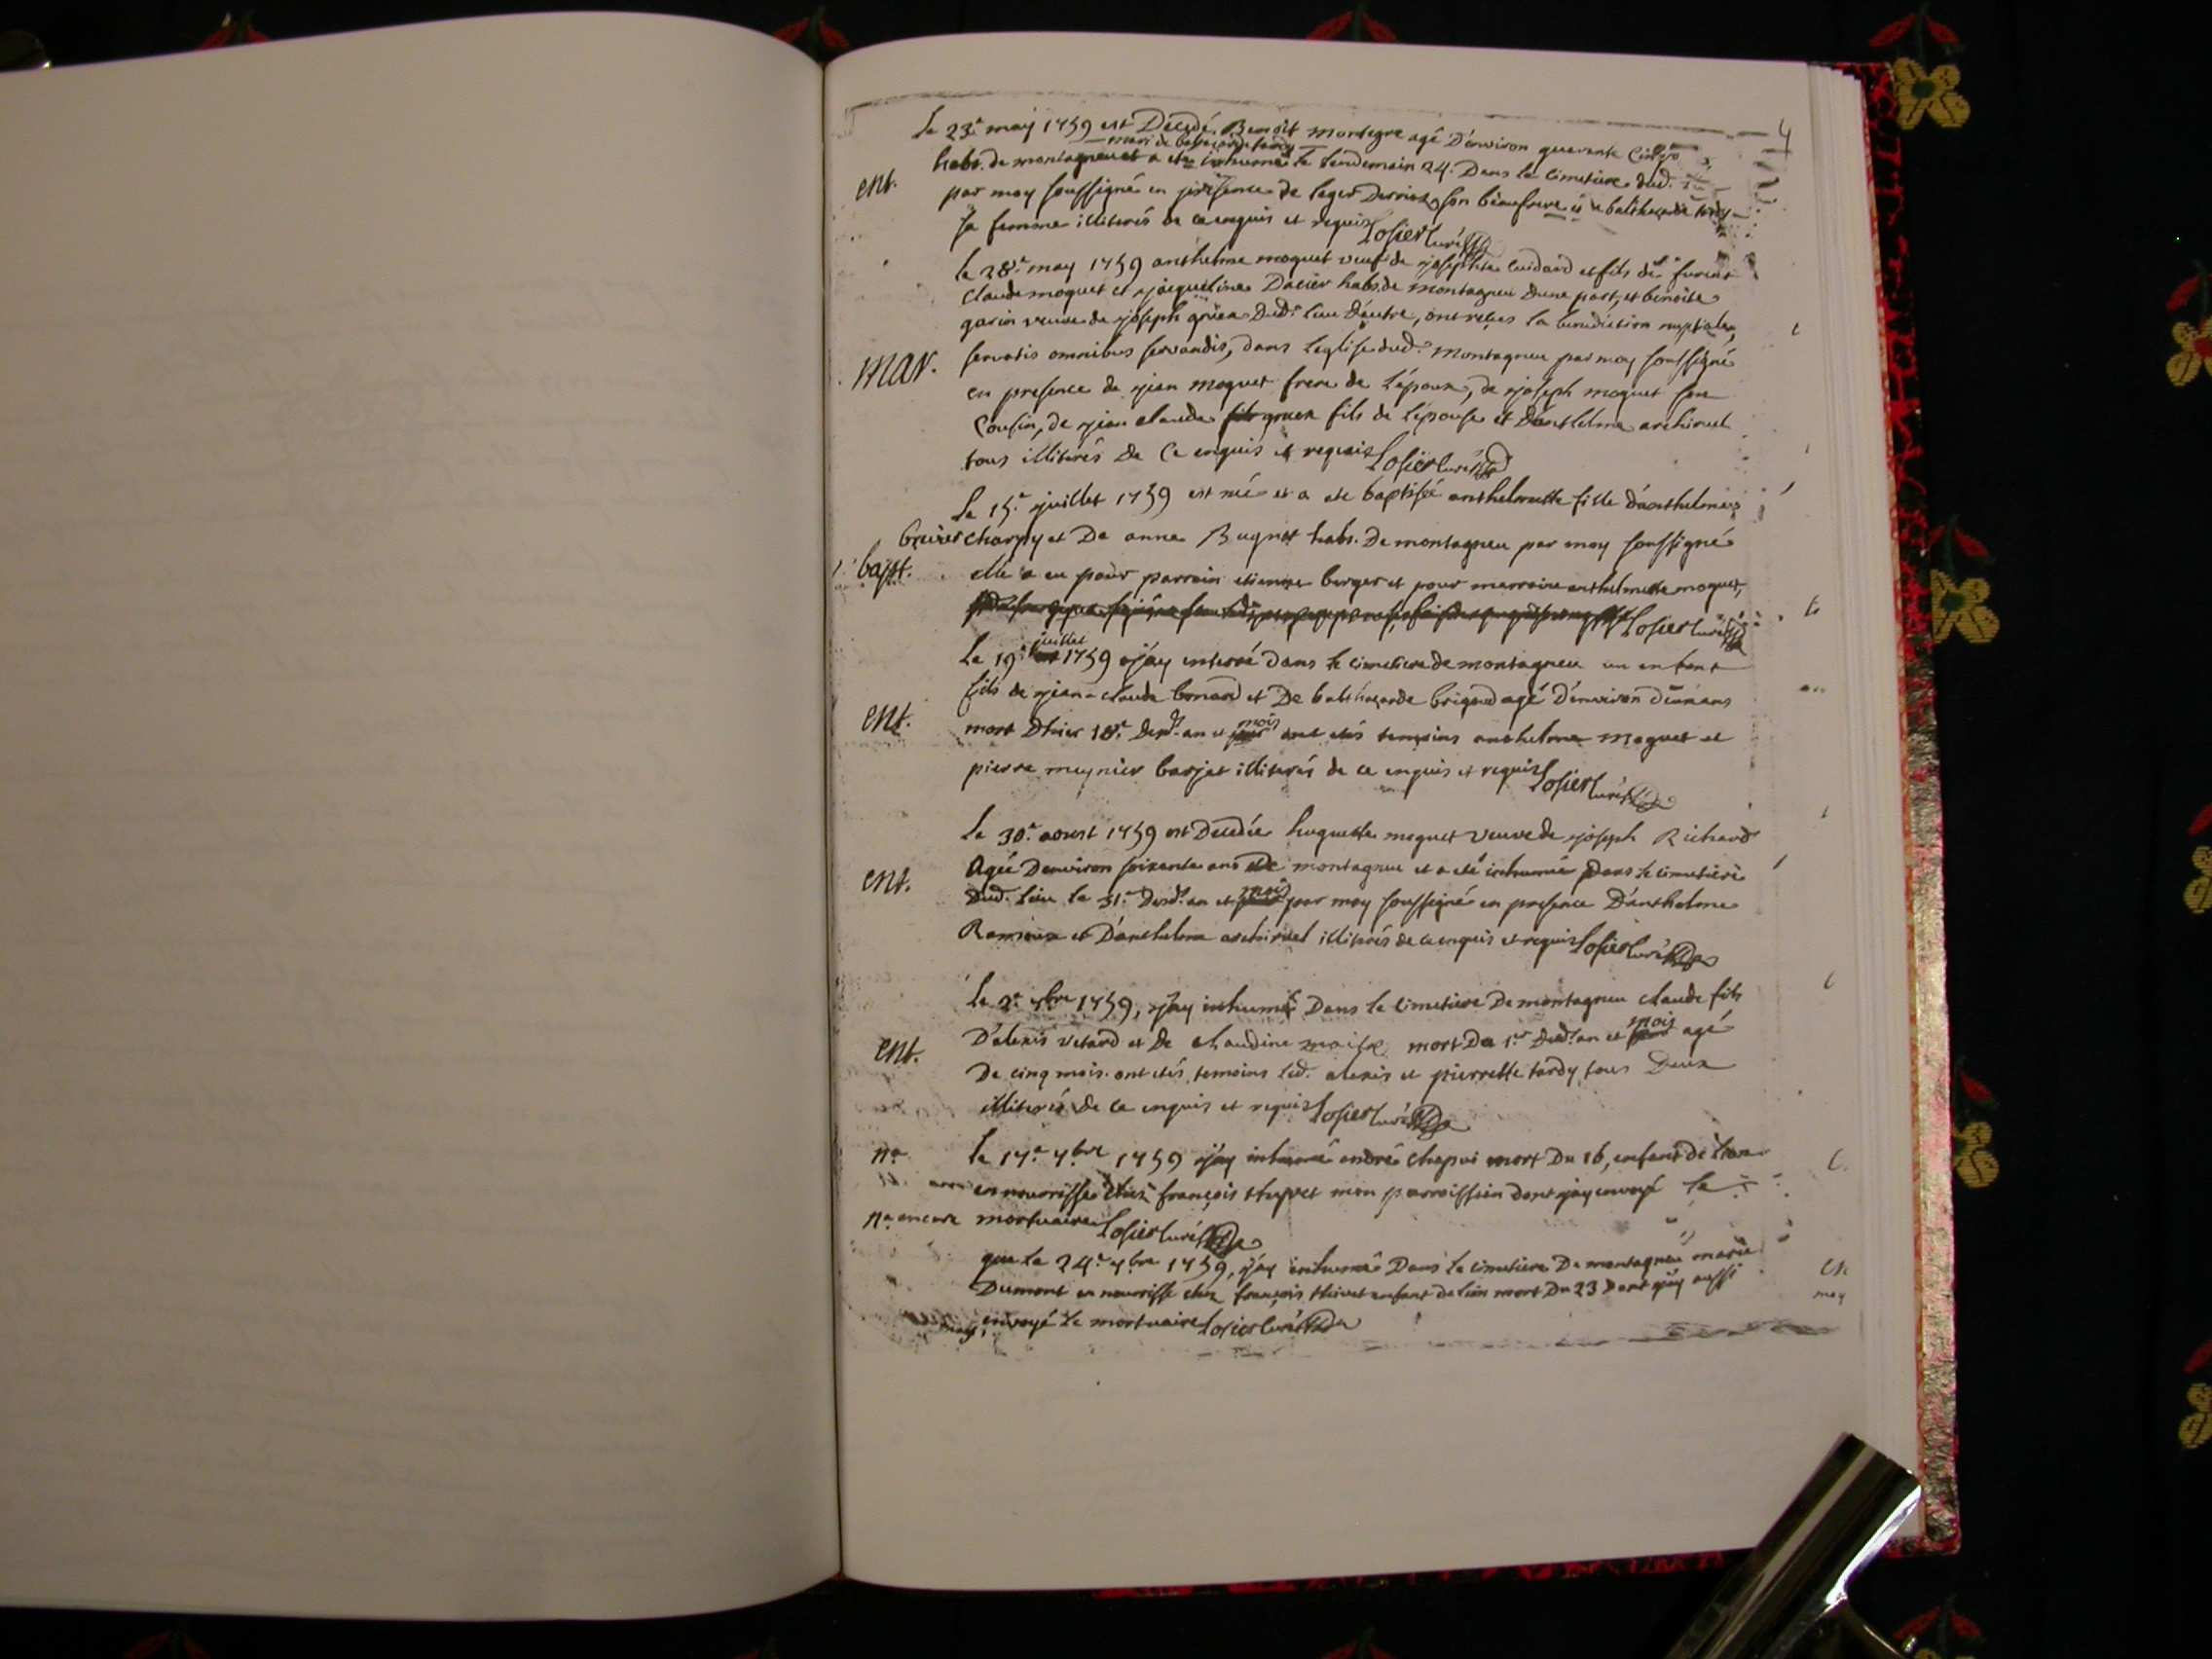 4
Le 23.e may 1759 est Decedé Benoit montegre agé D'environ quarente Cinq
mari de baltazarde tardy
habs. de montagneu et a eté inhumé le lendemain 24. Dans le cimetiere dud.
ent.
par moy soussigné en présence de leger Derrias son beaufrere et de balthazarde tardy
sa femme illiterés de ce enquis et requis Losier Curé
Le 28.e may 1759 anthelme moquet veuf de josephte cuidard et fils de furent
Claude moquet et jacqueline Dacier habs. de montagneu dune part, et benoite
garin veuve de joseph gruen dud. lieu d'autre, ont reçus la benediction nuptiale,
mar.
servatis omnibus servandis, dans leglise dud. montagneu par moy soussigné
en presence de jean moquet frere de l'epoux, de joseph moquet son
Cousin, de jean claude fils gruen fils de l'epouse et D'anthelme archirel
tous illiterés de Ce enquis et requis Losier Curé
Le 15.e juillet 1759 est née et a eté baptisée anthelmette fille d'anthelme
Charpy et De anne Bugnot habs. De montagneu par moy soussigné
bapt.
elle a eu pour parrain etienne berger et pour marraine anthelmette moquet,
Losier Curé
juillet
Le 19.e 1759 j'ay enterré dans le cimetiere de montagneu un enfant
fils de jean-claude bonard et De balthazarde brigand agé D'environ deux ans
ent.
mort D'hier 18.e desd. an et mois ont etés temoins anthelme moquet et
pierre meynier barjat illiterés de ce enquis et requis Losier Curé
Le 30.e aoust 1759 est Decedée huguette moquet veuve de joseph Richard
Agée Denviron soixante ans de montagneu et a eté inhumée Dans le cimetiere
ent.
Dud. lieu le 31.e Desd. an et mois par moy soussigné en presence D'anthelme
Ramieux et D'anthelme archirel illiterés de ce enquis et requis Losier Curé
Le 2.e 7bre 1759, j'ay inhumé Dans le Cimetiere De montagneu claude fils
D'alexis vetard et de claudine maitre mort Du 1.er Dud. an et mois agé
ent.
De cinq mois. ont etés temoins led. alexis et pierrette tardy tous Deux
illiterés de ce enquis et requis Losier Curé
na
Le 17.e 7bre 1759 j'ay inhumé andré chapui mort Du 16, enfant de lion
en nourrisse chez françois thivet mon parroissien dont j'ay envoyé le
na encore mortuaire Losier Curé
que le 24.e 7bre 1759, j'ay inhumé Dans le cimetiere De montagneu marie
Dumont en nourrisse chez françois thivet enfant de lion mort Du 23 Dont j'ay aussi
envoyé le mortuaire Losier Curé